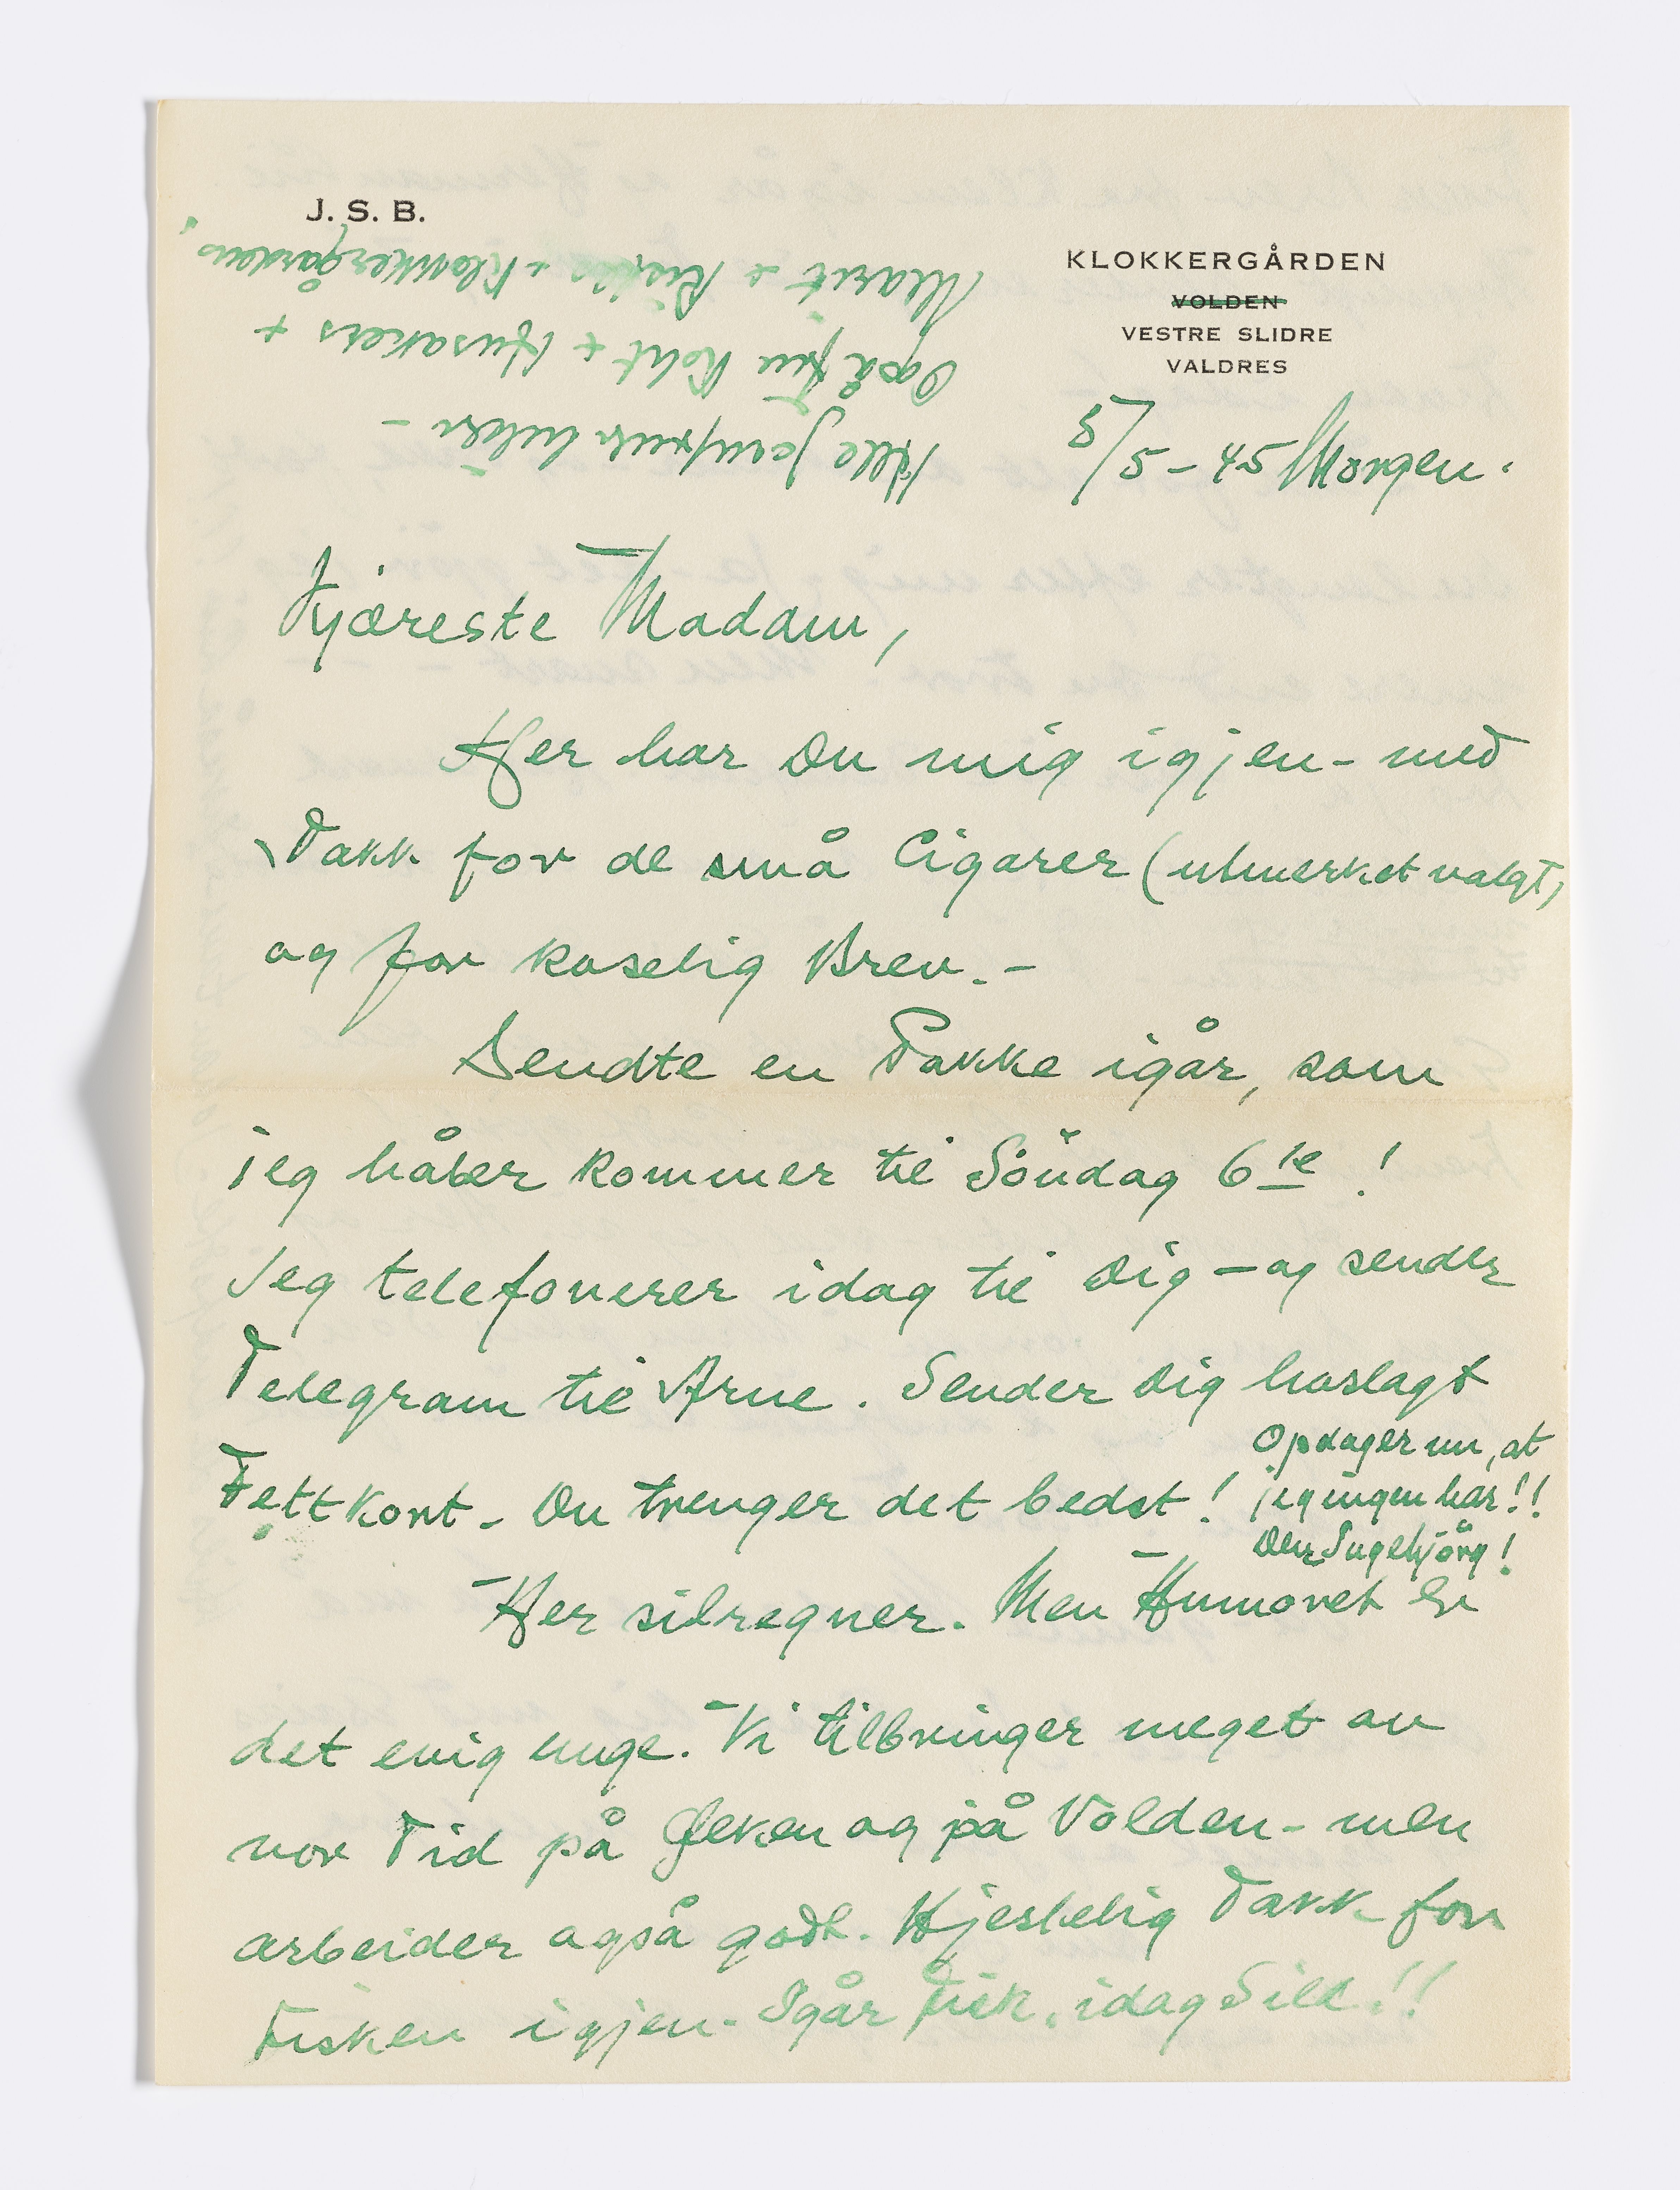 J. S. B.
KLOKKERGÅRDEN
VOLDEN
VESTRE SLIDRE
VALDRES
5/5-45 Morgen.
Kjæreste Madam,
Her har Du mig igjen - med
Takk for de små Cigarer (utmerket valgt)
og for koselig Brev. -
Sendte en Pakke igår, som
jeg håber kommer til Söndag 6te !
Jeg telefonerer idag til Dig - og sender
Telegram til Arne. Sender Dig hoslagt
Fettkort - Du trenger det bedst!
Opdager nu, at
jeg ingen har!!
Den Ingebjörg!
Her silregner. Men Humöret er
det evig unge. Vi tilbringer meget av
vor Tid på og på Volden - men
arbeider også godt. Hjertelig Takk for
Fisken igjen. Igår Fisk, idag Sild!!
Alle hilser -
Også fru Koht + Husakers +
Marit + + Klokkergårdens.